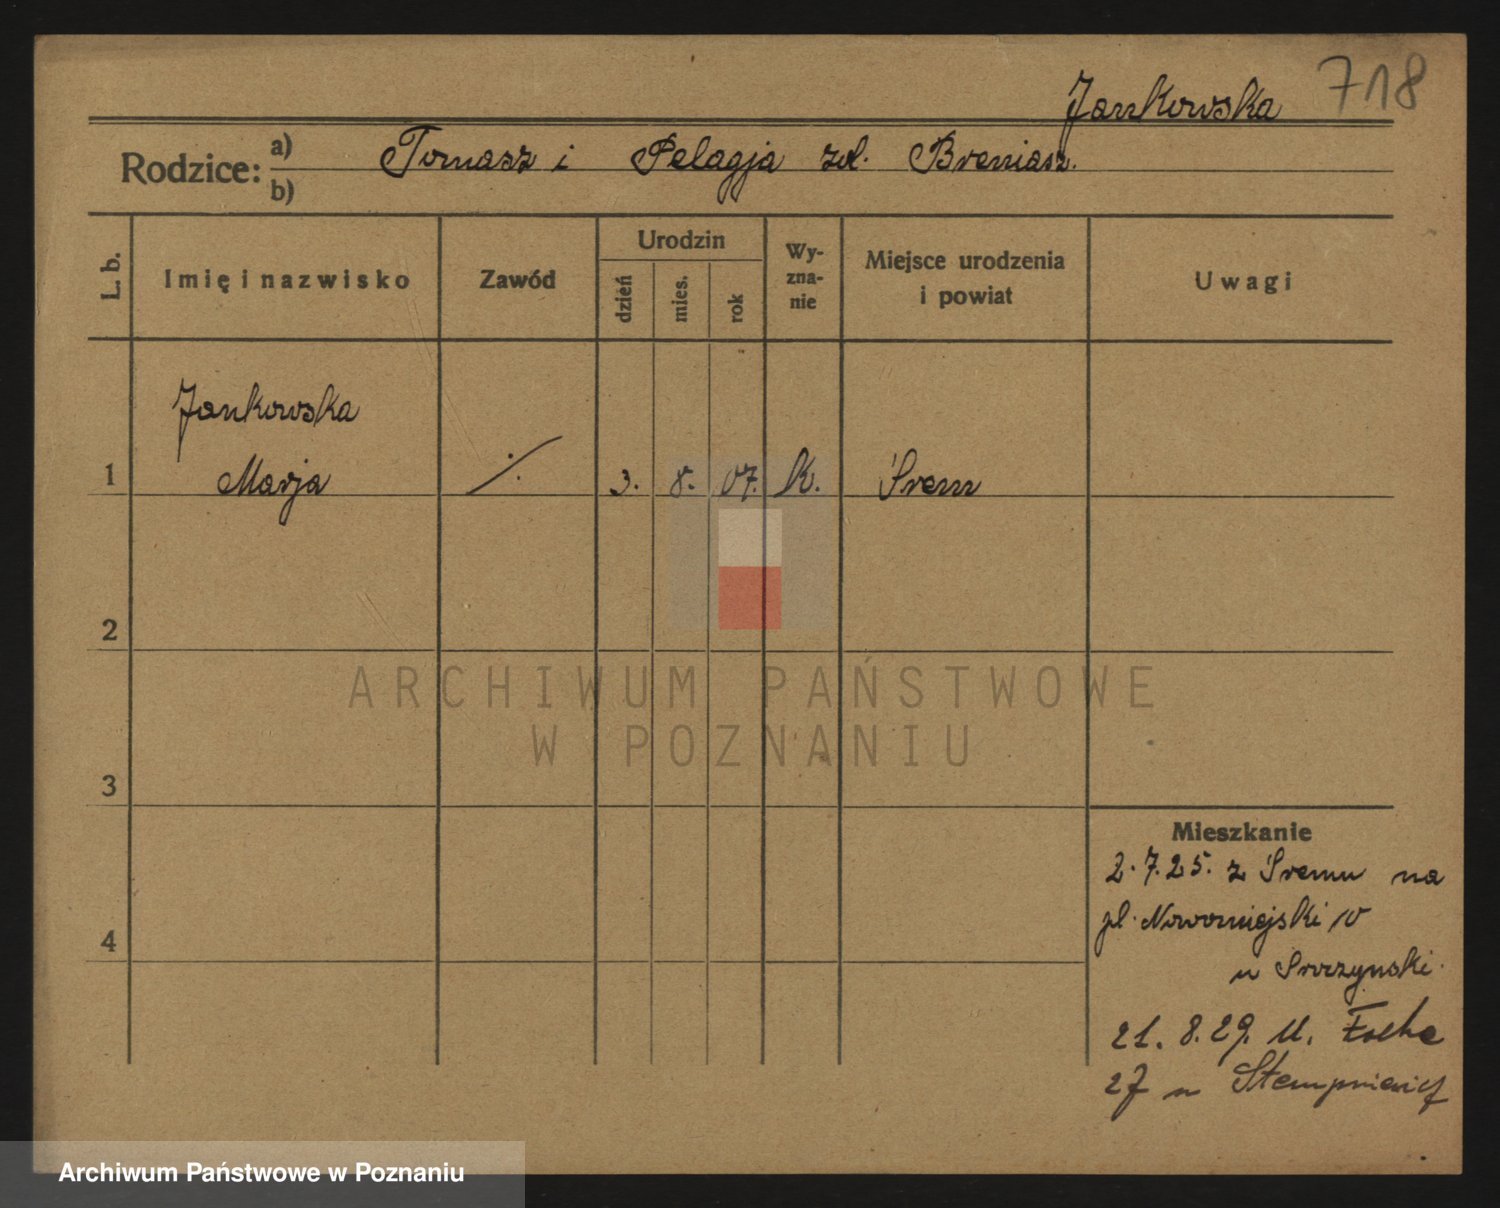 718
Jankowska
Rodzice: a) Tomasz i Pelagja zd. Breniasz.
b)
L. b. Imię i nazwisko Zawód Urodzin dzień mies. rok Wy-zna-nie Miejsce urodzenia i powiat Uwagi
Jankowska
1 Marja ./. 3. 8. 07. k. Śrem
2
3
4
Mieszkanie
2.7.25. z Śremu na
pl. Nowomiejski 10
u
21. 8. 29. Ul. Focha
27 u Stempniewicz
ARCHIWUM PAŃSTWOWE
W POZNANIU
Archiwum Państwowe w Poznaniu